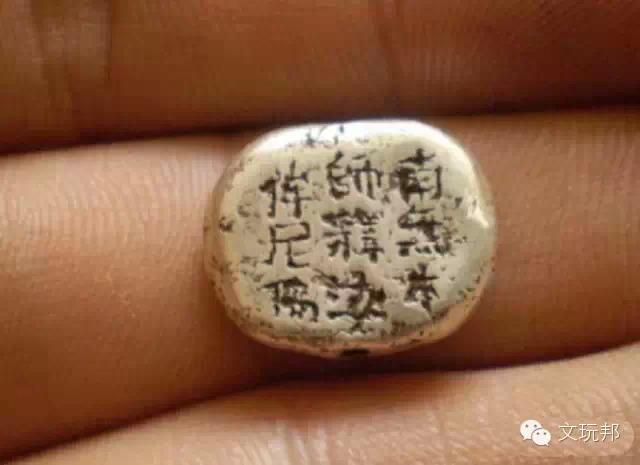 南無本
師釋迦
侔尼佛
文玩邦